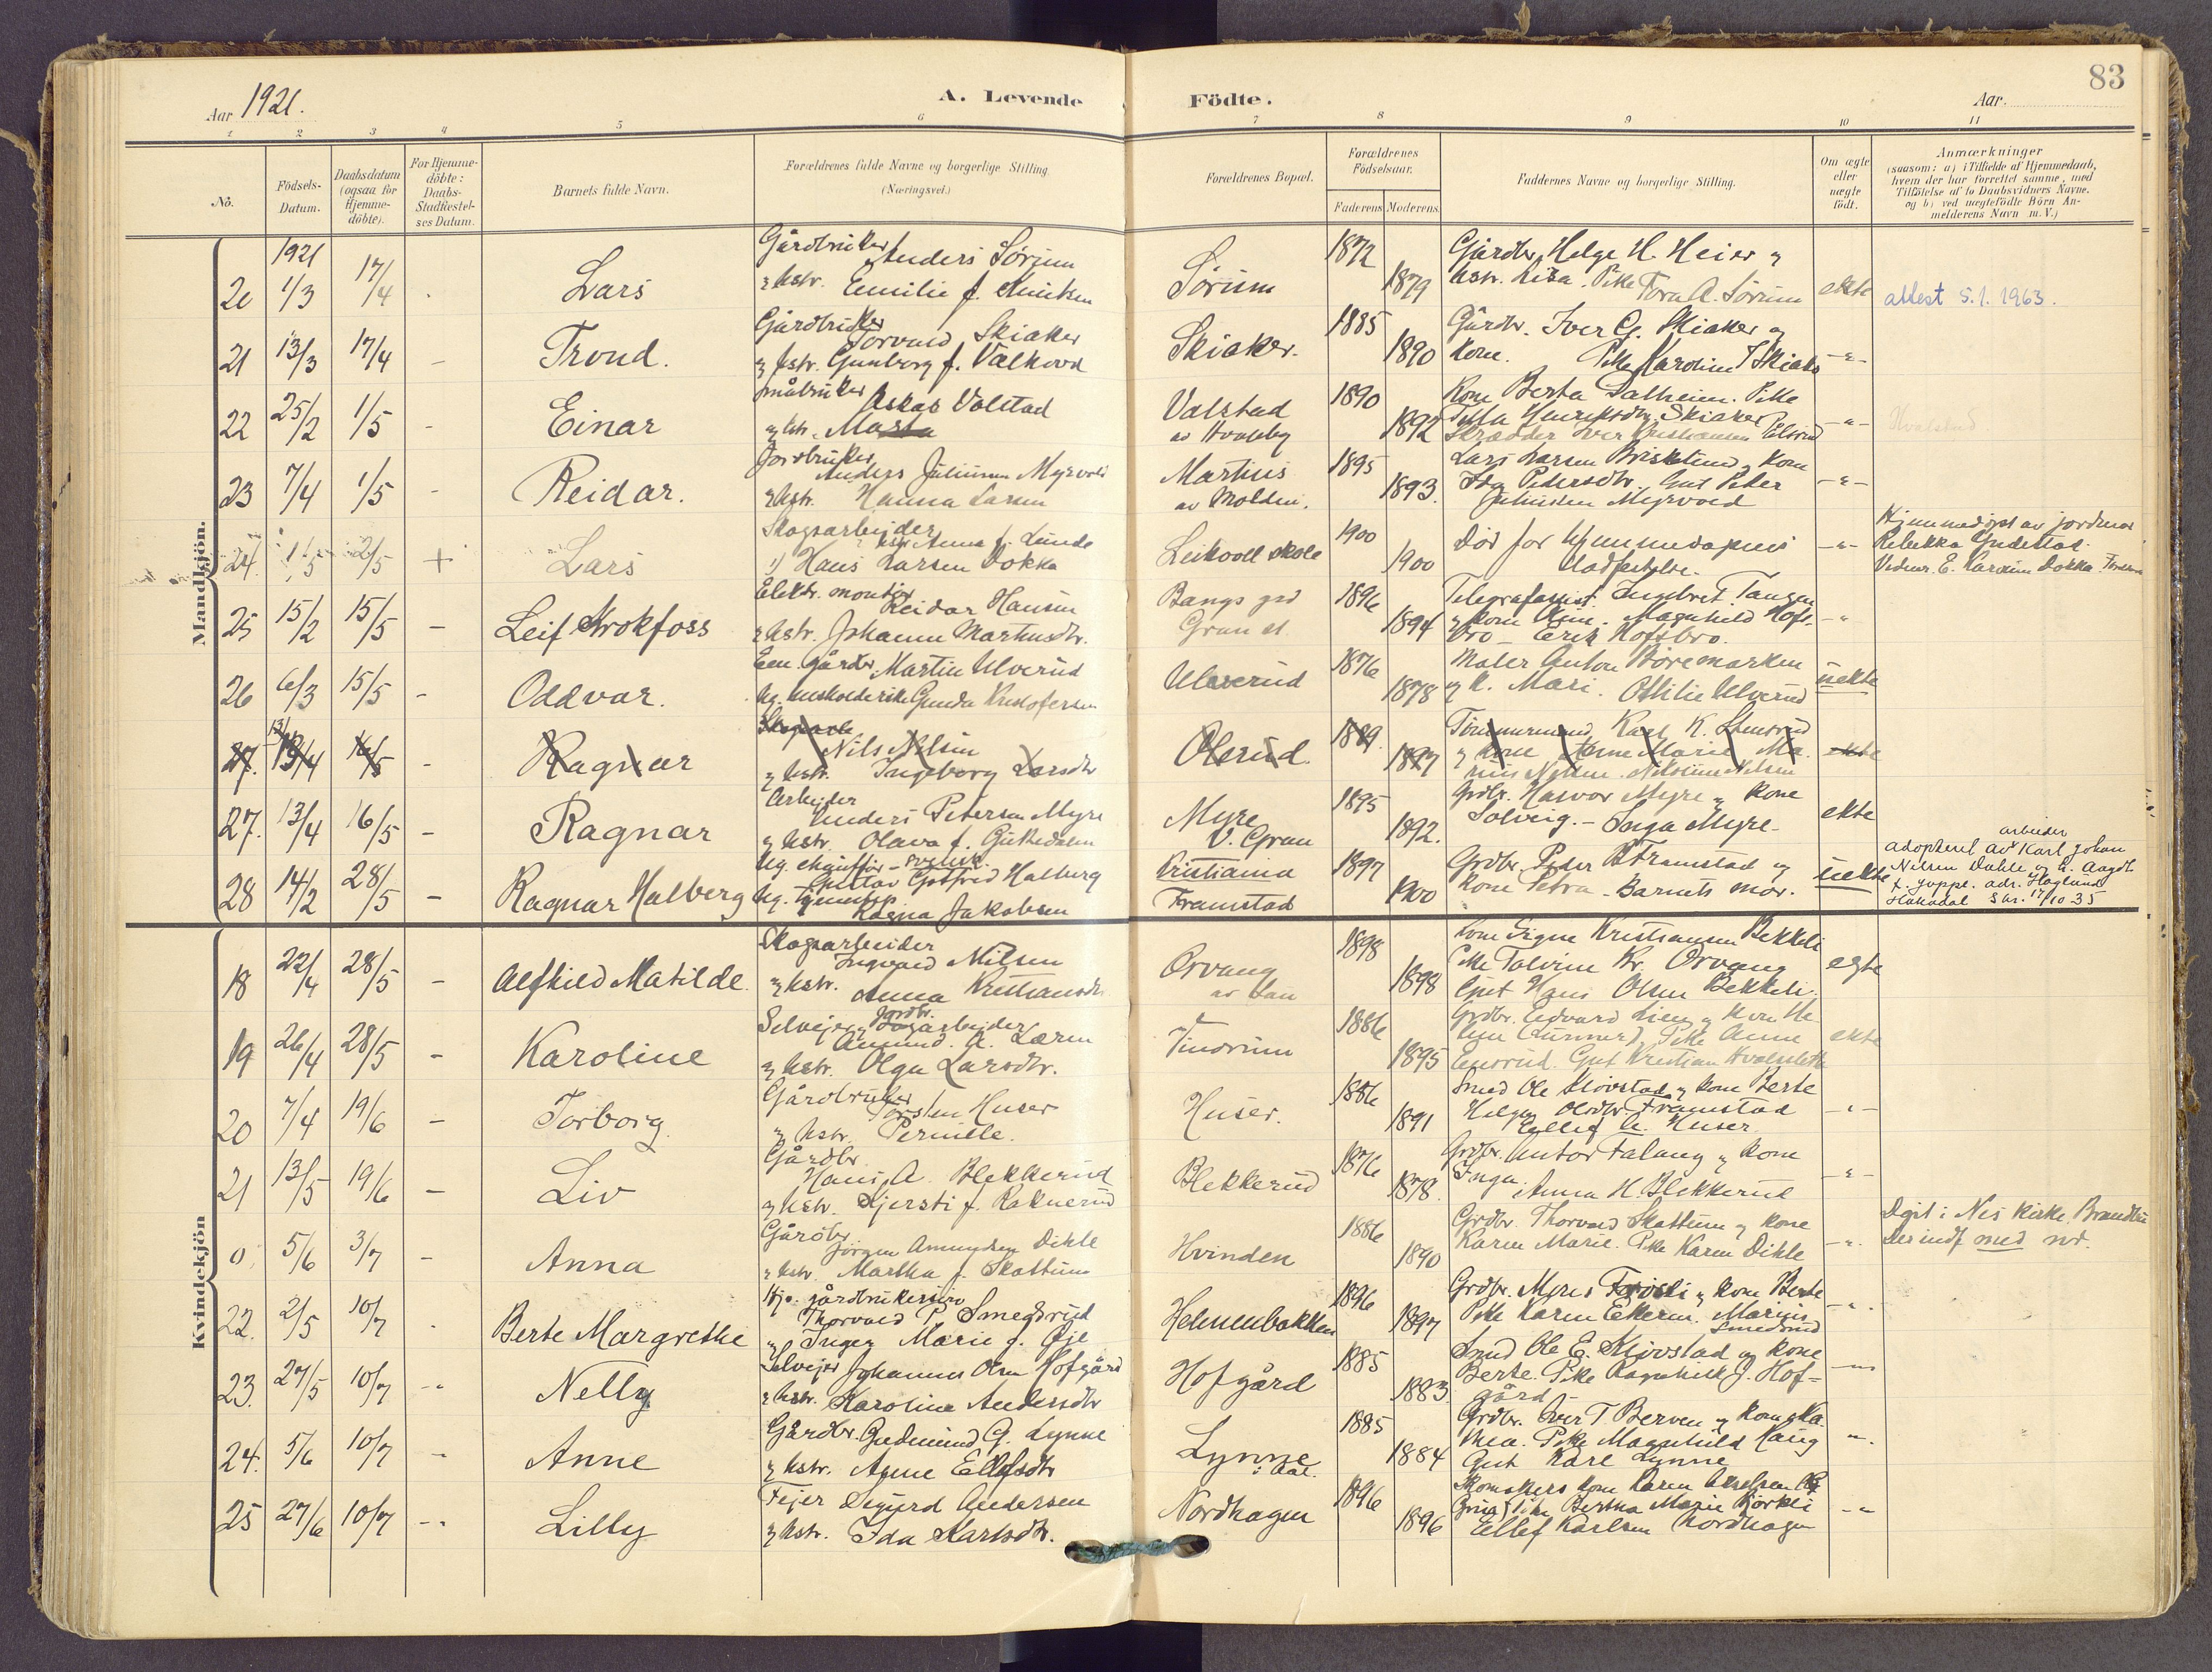 83
Aar 1921.
A. Levende Födte.
Aar.
1 2 3 4 5 6 7 8 9 10 11
No.
Födsels-
Datum.
Daabsdatum
(ogsaa for
Hjemme-
döbte).
For Hjemme-
döbte:
Daabs-
Stadfæstel-
ses Datum.
Barnets fulde Navn.
Forældrenes fulde Navne og borgerlige Stilling
(Næringsvei.)
Forældrenes Bopæl.
Forældrenes
Födselsaar.
Faderens Moderens.
Faddernes Navne og borgerlige Stilling.
Om ægte
eller
uægte
födt.
Anmærkninger
(saasom: a) i Tilfælde af Hjemmedaab,
hvem der har forrettet samme, med
Tilföielse af to Daabsvidners Navne.
og b) ved uægtefödte Börn An-
melderens Navn m. V.)
Mandkjön.
1921
20 1/3 17/4 Lars
Gårdbruker Anders Sörum
og hstr. Emilie f.
Sörum 1872 1879
Gårdbr. Helge H. Heier og
hstr. Lisa. Pike Tora A. Sörum
ekte
attest 5.1.1963.
21 13/3 17/4 - Trond.
Gårdbruker
Torvald Skiaker
og hstr. Gunborg f. Valkord
Skiaker. 1885 1890
Gårdbr. Iver G. Skiaker og
Kone. Pike Karoline T Skiaker
-"-
22 25/2 1/5 - Einar
Småbruker Oskar Valstad
og hstr. Marta
Valstad 1890 1892
Kone Berta Dalheim. Pike
Henriksdtr. Skiaker
Skrædder Iver Kristiansen
-"-
Hvalstad.
23 7/4 1/5 - Reidar.
Jordbruker
Anders Juliussen Myrvold
og hstr. Hanna Larsen
Martius
av Molden. 1895 1893.
Lars Larsen og Kone
Ida Pedersdtr. Gut Peder
Juliussen Myrvold
-"-
24. 1/5 2/5 + Lars
Skogsarbeider
hstr Anna f. Lunde
Hans Larsen Dokka
Leikvoll skole 1900 1900
Död for Hjemmedåpens
Stadfestelse.
-"-
Hjemmedöpt av jordmor
Rebekka
Vidner. E. Karoline Dokka
25 15/2 15/5 - Leif Krokfoss
Elektr. montör
Reidar Hansen
og hstr. Johanne Martinsdtr.
Bangs grd
Gran st. 1896 1894
Telegrafassist. Ingebret Tangen
og kone. Magnhild Hofs-
bro - Erik Hofsbro.
-"
26 6/3 15/5 - Oddvar.
Em. gårdbr. Martin Ulverud
Ug. husholderske Gunda Kristofersen
Ulverud 1876 1878
Maler Anton Böremarken
og K. Mari. Ottilie Ulverud
uekte
27. 13/4 16/5 - Ragnar
Nils Nilsen
og hstr. Ingeborg Larsdtr
Olerud. 1889. 1897
Tömmermand Karl K.
og kone Anne Marie. Ma-
rius Nilsen. Nilsine Nilsen
ekte
27. 13/4 16/5 - Ragnar
Arbeider
Anders Petersen Myre
og hstr. Olava f.
Myre
V. Gran 1895 1892.
Grdbr. Halvor Myre og Kone
Solveig. - Inga Myre.
ekte
28 14/2 28/5 - Ragnar Halberg
Ug. chaufför - svensk.
Gustav Gotfred Halberg
Ug. tjenestep.
Ragna Jakobsen
Kristiania
Framstad 1897 1900
Grdbr. Peder B Framstad og
Kone Petra - Barnets mor.
uekte
arbeider
adoptert av Karl Johan
Nilsen Dahle og h. Aagdt
f. Juppl. adr. Hagland
Hakadal skr. 17/10 35
Kvindekjön
18 22/4 28/5 - Alfhild Matilde.
Skogsarbeider
Ingvald Nilsen
og hstr. Anna Kristiansdtr
Orvang 1898 1898
Kone Signe Kristiansen Bekkeli
Pike Talvine Kr. Orvang
Gut Hans Olsen Bekkeli.
egte
19 26/4 28/5 - Karoline
Selveier og Jordbr.
Amund. A. Læren
og hstr. Olga Larsdtr.
Tindrum 1886 1895
Grdbr. Edvard Lien og Kone He-
lene (Lunner). Pike Anne
Gut Kristian
ekte
20 7/4 19/6 - Torborg
Gårdbruker
Torsten Huser
og hstr. Pernille.
Huser. 1886 1891
Smed Ole Klövstad og kone Berte
Helge Olsdtr. Framstad
Ellef A. Huser.
-"-
21 13/5 19/6 - Liv
Gårdbr
Hans A. Blekkerud
og hstr. Kjersti f. Raknerud
Blekkerud 1876 1878.
Grdbr. Anton Falang og kone
Inga. Anna H Blekkerud
-"-
0 5/6 3/7 - Anna
Gårdbr.
Jörgen Amundsen Dihle
og hstr. Martha f. Skattum
Hvinden 1886 1890
Grdbr. Thorvald Skattum og kone
Karen Marie. Pike Karen Dihle
-"-
Dpt i Nes Kirke, Brandbu
Der indf med nr.
22. 2/5 10/7 Berte Margrethe
gårdbrukersön
Thorvald P. Smedsrud
og Inger Marie f. Öje
Helmenbakken 1896 1897
Grdbr. Mons og kone Berte
Pike Karen Ekern. Marius
Smedsrud
-"-
23. 27/5 10/7 - Nelly
Selveier Johannes Olsen Hofgård
og hstr. Karoline Andersdtr
Hofgård 1885 1883.
Smed Ole E. Klövstad og kone
Berte. Pike Ragnhild J. Hof-
gård
-"-
24. 5/6 10/7 - Anne
Gårdbr. Gudmund G. Lynne
og hstr. Agne Ellefsdtr
Lynne 1885 1884
Grdbr. Iver T Berven og kone Ka-
thea. Pike Magnhild Haug
Gut Kåre Lynne
"-
25 27/6 10/7 - Lilly
Fejer Sigurd Andersen
og hstr. Ida Karlsdtr.
Nordhagen 1896 1896
Skomakers kone Karen
Pike Bertha Marie Björkli
Ellef Karlsen Nordhagen
-"-